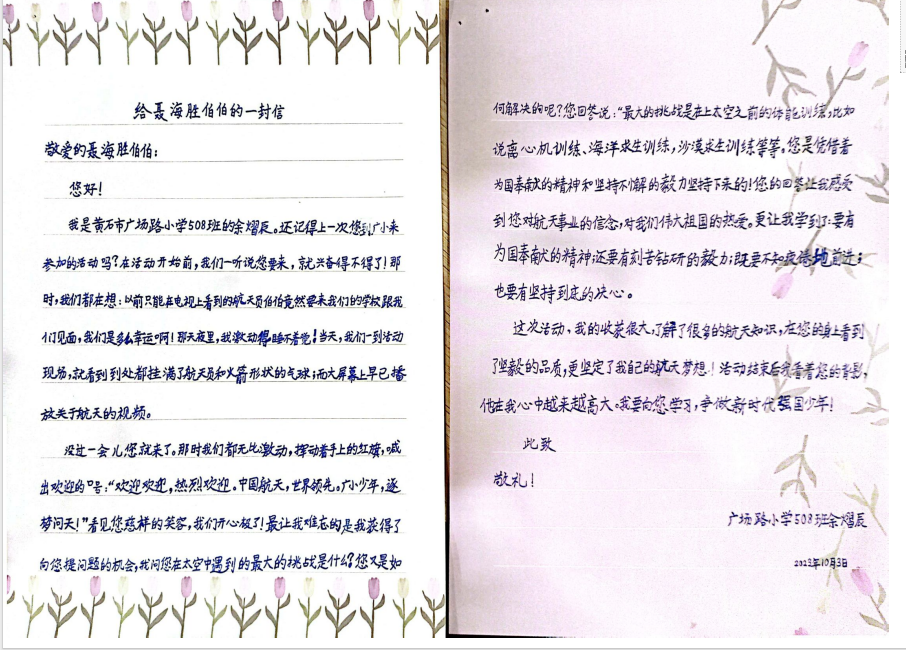 给聂海胜伯伯的一封信
敬爱的聂海胜伯伯：
您好！
我是黄石市广场路小学508班的余熠辰。还记得上一次您到广小来
参加的活动吗？在活动开始前，我们一听说您要来，就兴奋得不得了！那
时，我们都在想：以前只能在电视上看到的航天员伯伯竟然要来我们的学校跟我
们见面，我们是多么幸运啊！那天夜里，我激动得睡不着觉！当天，我们一到活动
现场，就看到到处都挂满了航天员和火箭形状的气球；而大屏幕上早已播
放关于航天的视频。
没过一会儿您就来了。那时我们都无比激动，挥动着手上的红旗，喊
出欢迎的口号：“欢迎欢迎，热烈欢迎。中国航天，世界领先。广小少年，逐
梦问天！”看见您慈祥的笑容，我们开心极了！最让我难忘的是我获得了
向您提问题的机会，我问您在太空中遇到的最大的挑战是什么？您又是如
何解决的呢？您回答说：“最大的挑战是在上太空之前的体能训练，比如
说离心机训练、海洋求生训练，沙漠求生训练等等。您是凭借着
为国奉献的精神和坚持不懈的毅力坚持下来的！您的回答让我感受
到您对航天事业的信念，对我们伟大祖国的热爱。更让我学到了：要有
为国奉献的精神；还要有刻苦钻研的毅力；既要不知疲倦地前进；
也要有坚持到底的决心。
这次活动，我的收获很大，了解了很多的航天知识，在您的身上看到
了坚毅的品质，更坚定了我自己的航天梦想！活动结束后我看着您的背影，
他在我心中越来越高大。我要向您学习，争做新时代强国少年！
此致
敬礼！
广场路小学508班余熠辰
2023年10月3日